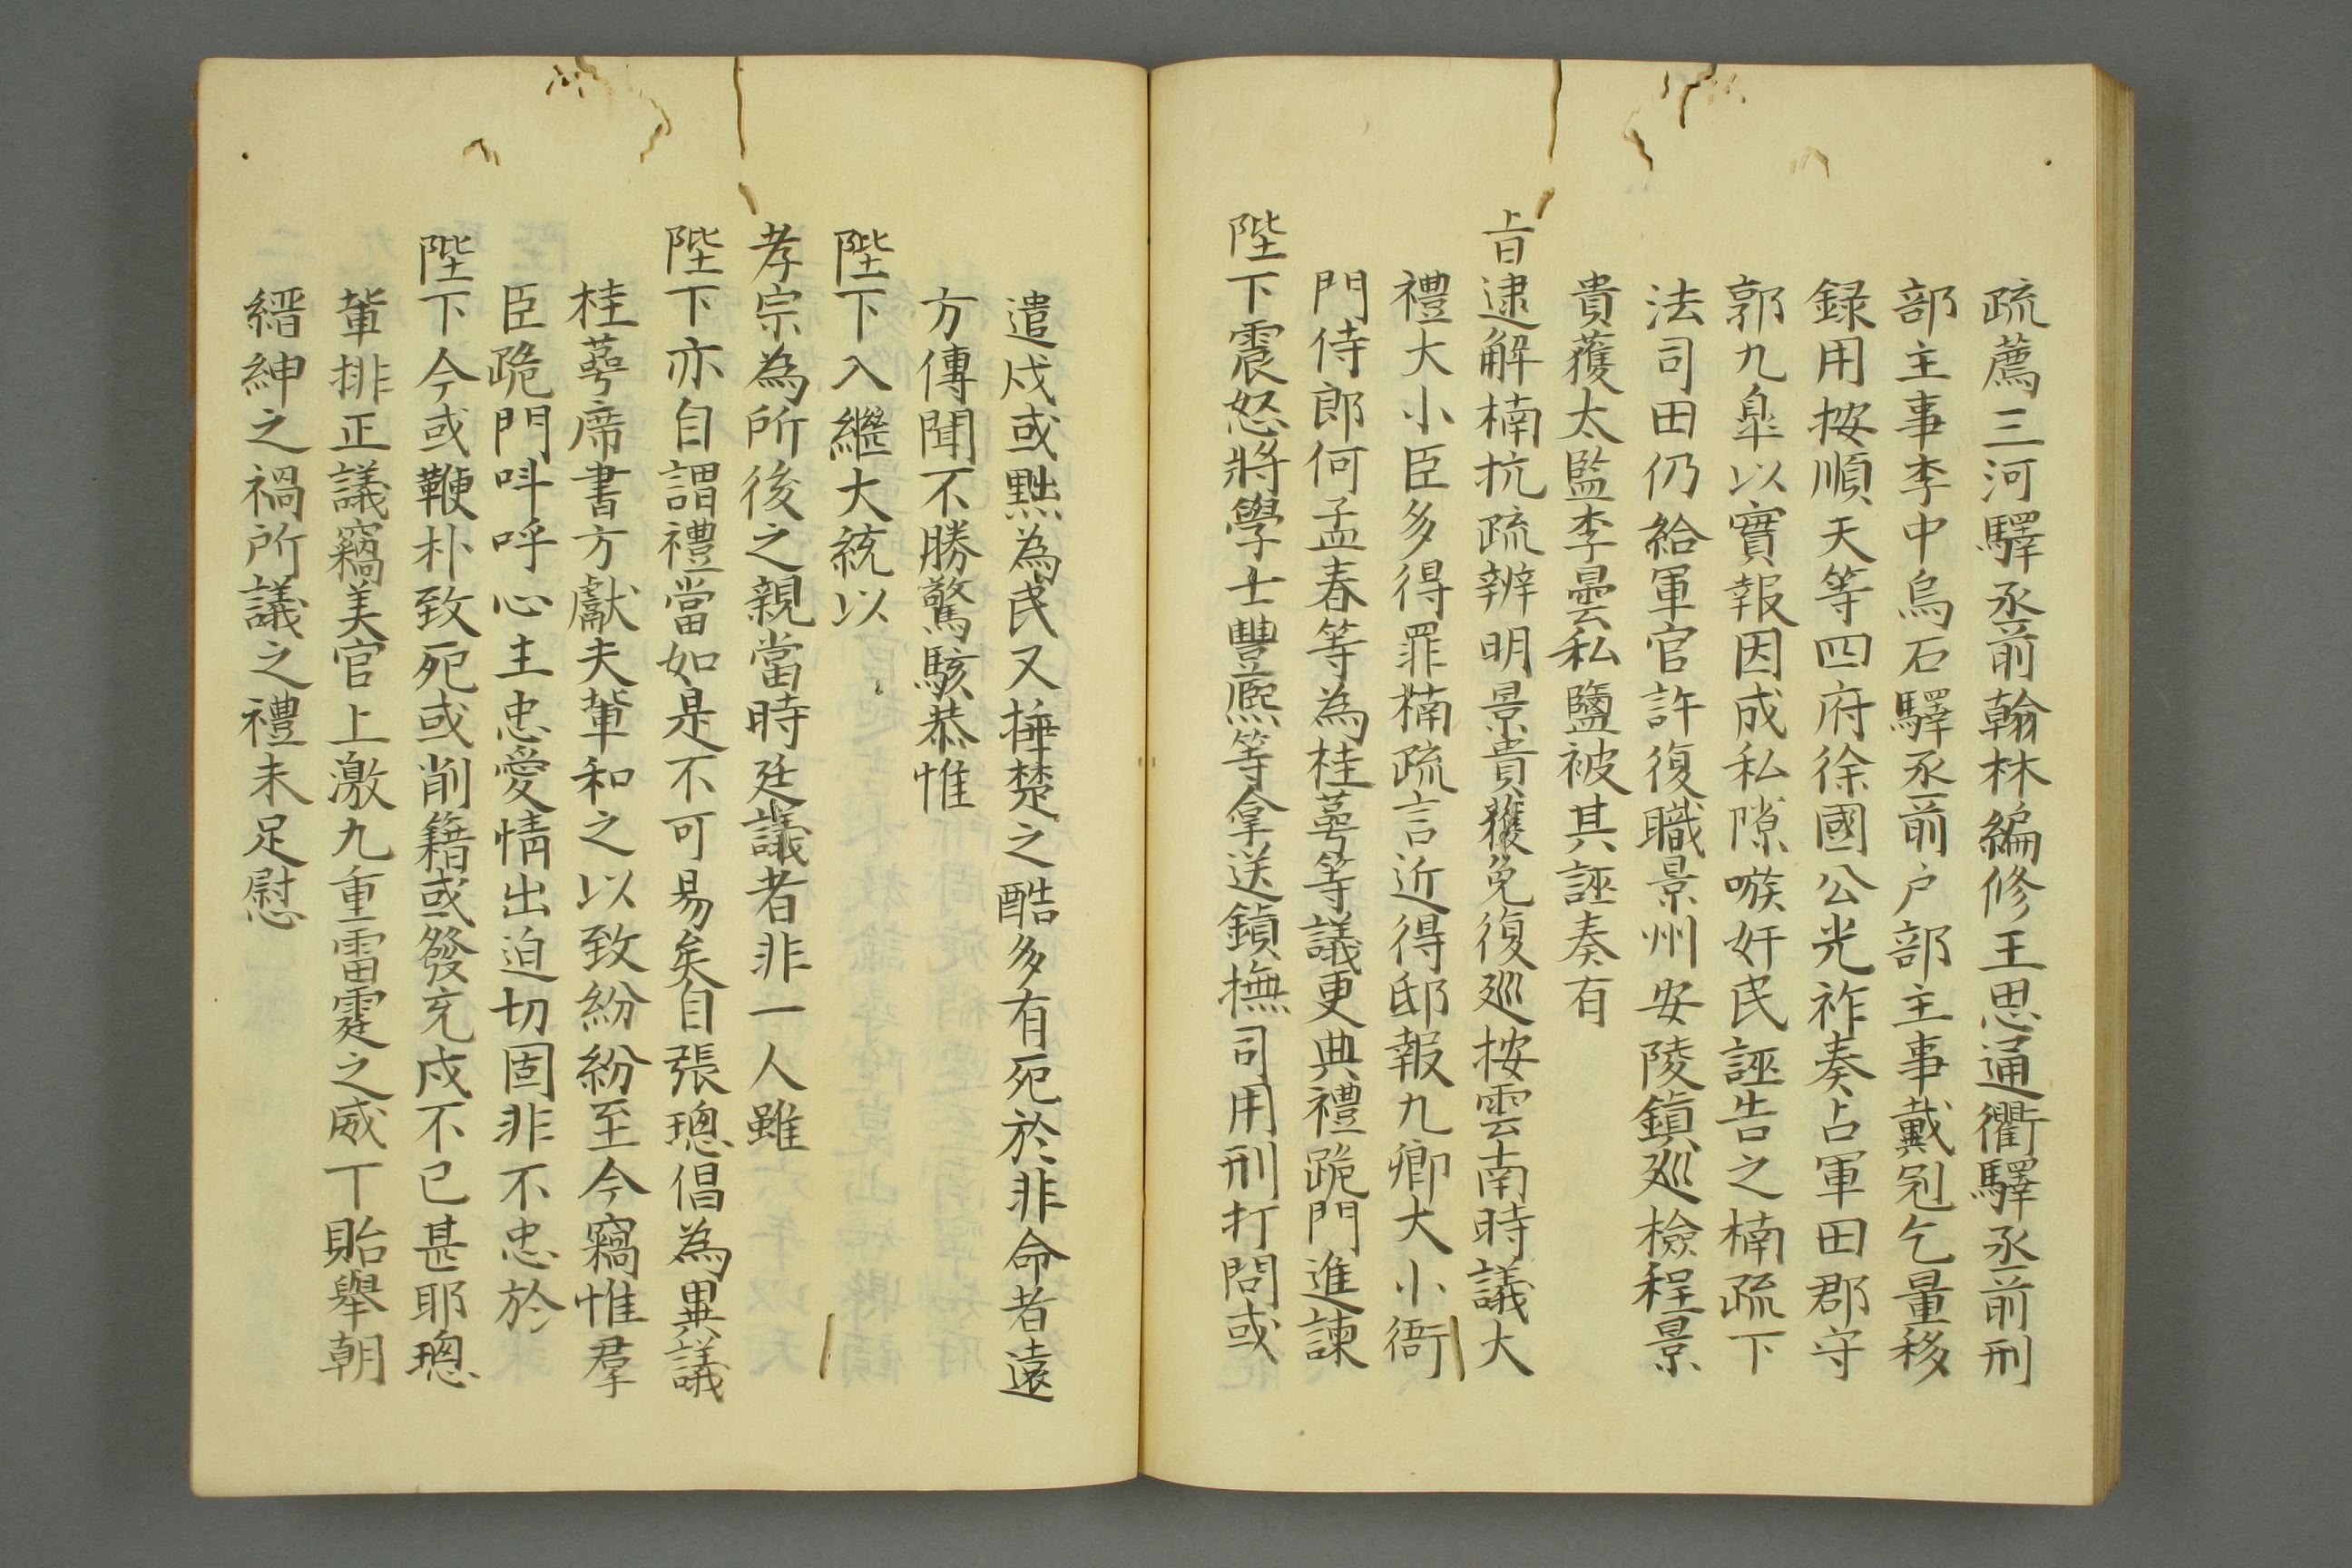 疏薦三河驛丞前翰林編修王思通衢驛丞前刑
部主事李中烏石驛丞前户部主事戴冠乞量移
録用按順天等四府徐國公光祚奏占軍田郡守
郭九臯以實報因成私隙嗾奸民誣告之楠疏下
法司田仍給軍官許復職景州安陵鎮廵檢程景
貴獲太監李曇私鹽被其誣奏有
㫖逮解楠抗疏辨明景貴獲免復廵按雲南時議大
禮大小臣多得罪楠疏言近得邸報九卿大小衙
門侍郎何孟春等為桂萼等議更典禮跪門進諫
陛下震怒將學士豐熈等拿送鎮撫司用刑打問或
遣戍或黜為民又捶楚之酷多有死於非命者遠
方傳聞不勝驚駭恭惟
陛下入繼大統以
孝宗為所後之親當時廷議者非一人雖
陛下亦自謂禮當如是不可易矣自張璁倡為異議
桂萼席書方獻夫輩和之以致紛紛至今竊惟羣
臣跪門呌呼心主忠愛情出迫切固非不忠於
陛下今或鞭朴致死或削籍或發充戍不已甚耶璁
輩排正議竊美官上激九重雷霆之威丅貽舉朝
縉紳之禍所議之禮未足慰